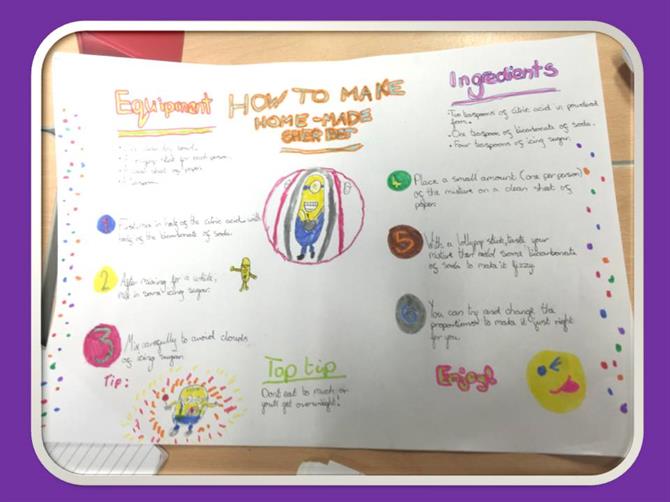 Equipment
HOW TO MAKE
HOME-MADE
SHERBET
Ingredients
• Two teaspoons of citric acid in powdered
form.
• One teaspoon of bicarbonate of soda.
• Four teaspoons of icing sugar.
bowl.
stick for each person.
sheet of paper.
1 First mix in half of the citric acid with
half of the bicarbonate of soda.
2 After mixing for a while,
mix in some icing sugar.
3 Mix carefully to avoid clouds
of icing sugar.
Tip:
Top tip
Dont eat to much or
you'll get overweight!
4 Place a small amount (one per person)
of the mixture on a clean sheet of
paper.
5 With a lollypop stick, taste your
mixture then add some bicarbonate
of soda to make it fizzy.
6 You can try and change the
proportions to make it just right
for you.
Enjoy!